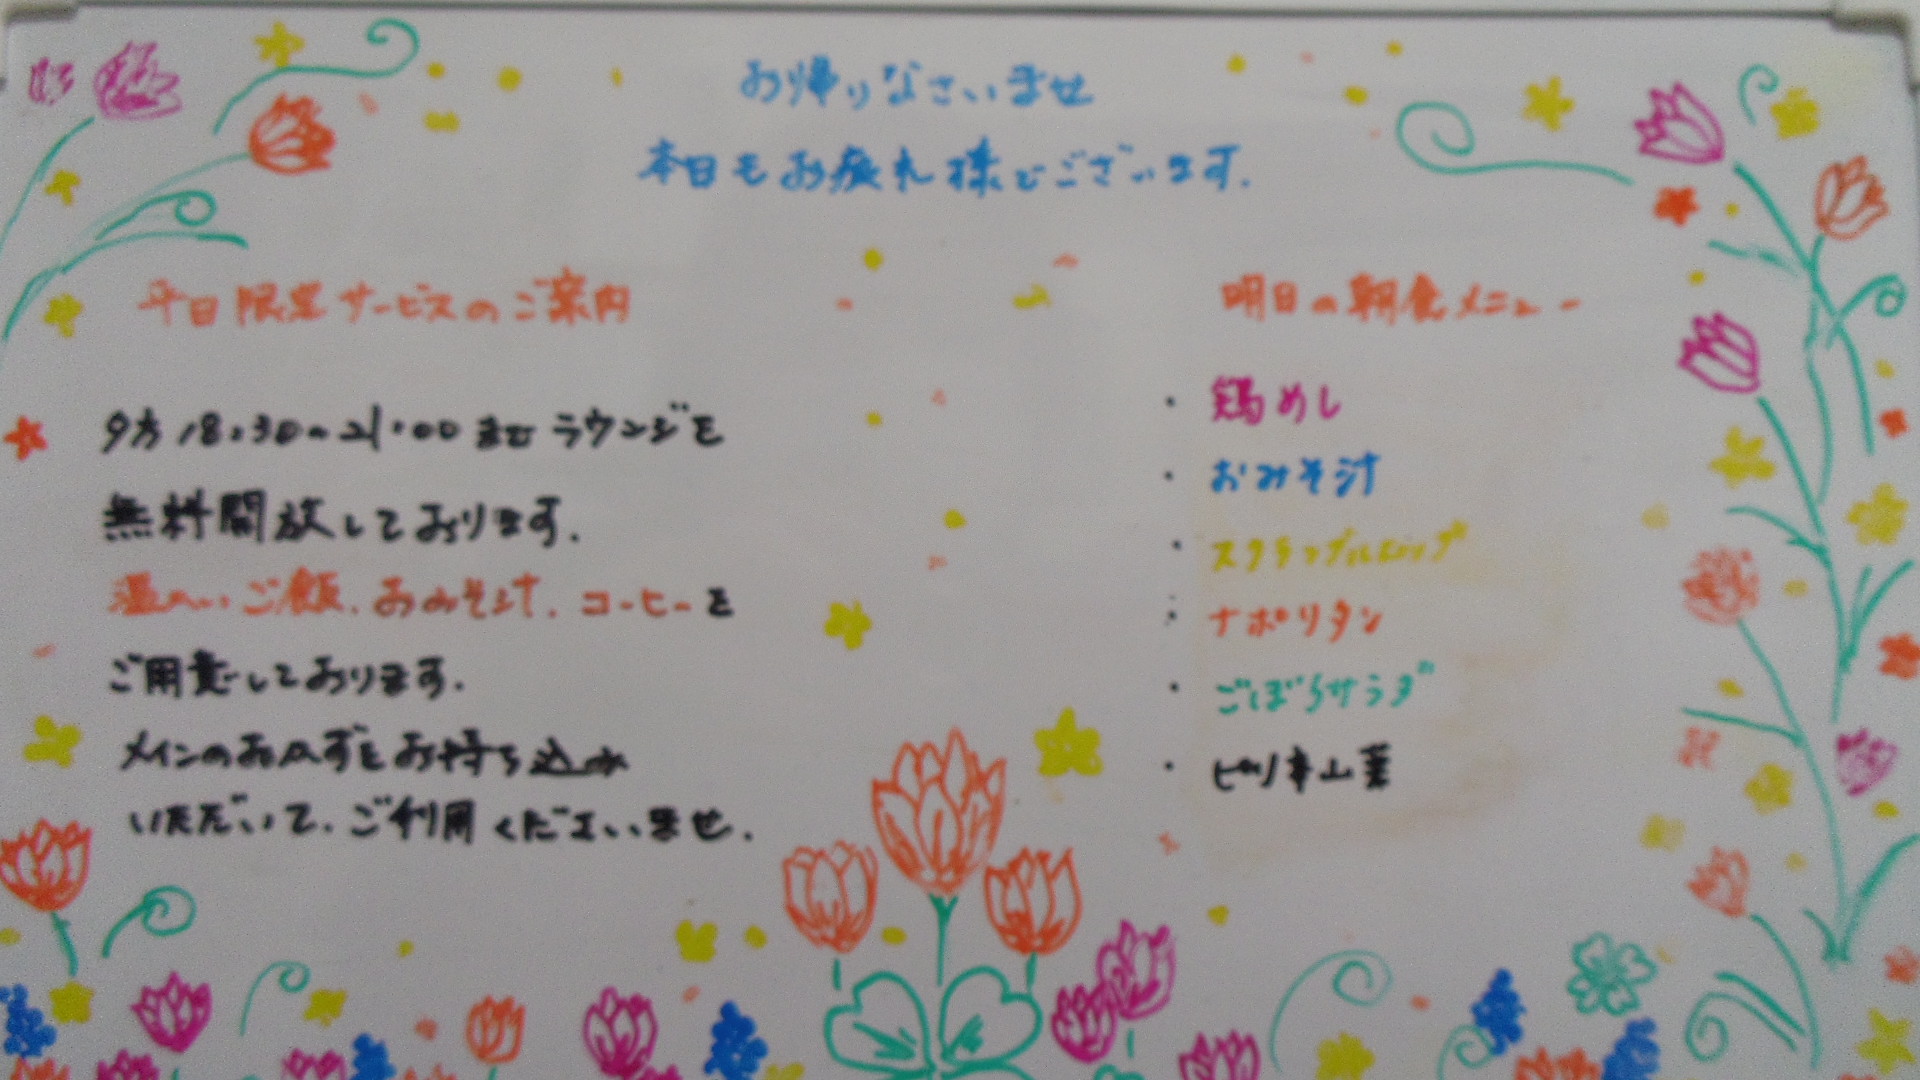 お帰りなさいませ
本日もお疲れ様でございます.
平日限定サービスのご案内
夕方 18:30〜21:00 まで ラウンジを
無料開放しております.
温かいご飯、おみそ汁、コーヒーを
ご用意しております.
メインのおかずをお持ち込み
いただいて、ご利用くださいませ.
明日の朝食メニュー
・鶏めし
・おみそ汁
・スクランブルエッグ
・ナポリタン
・ごぼうサラダ
・ピリ辛山菜